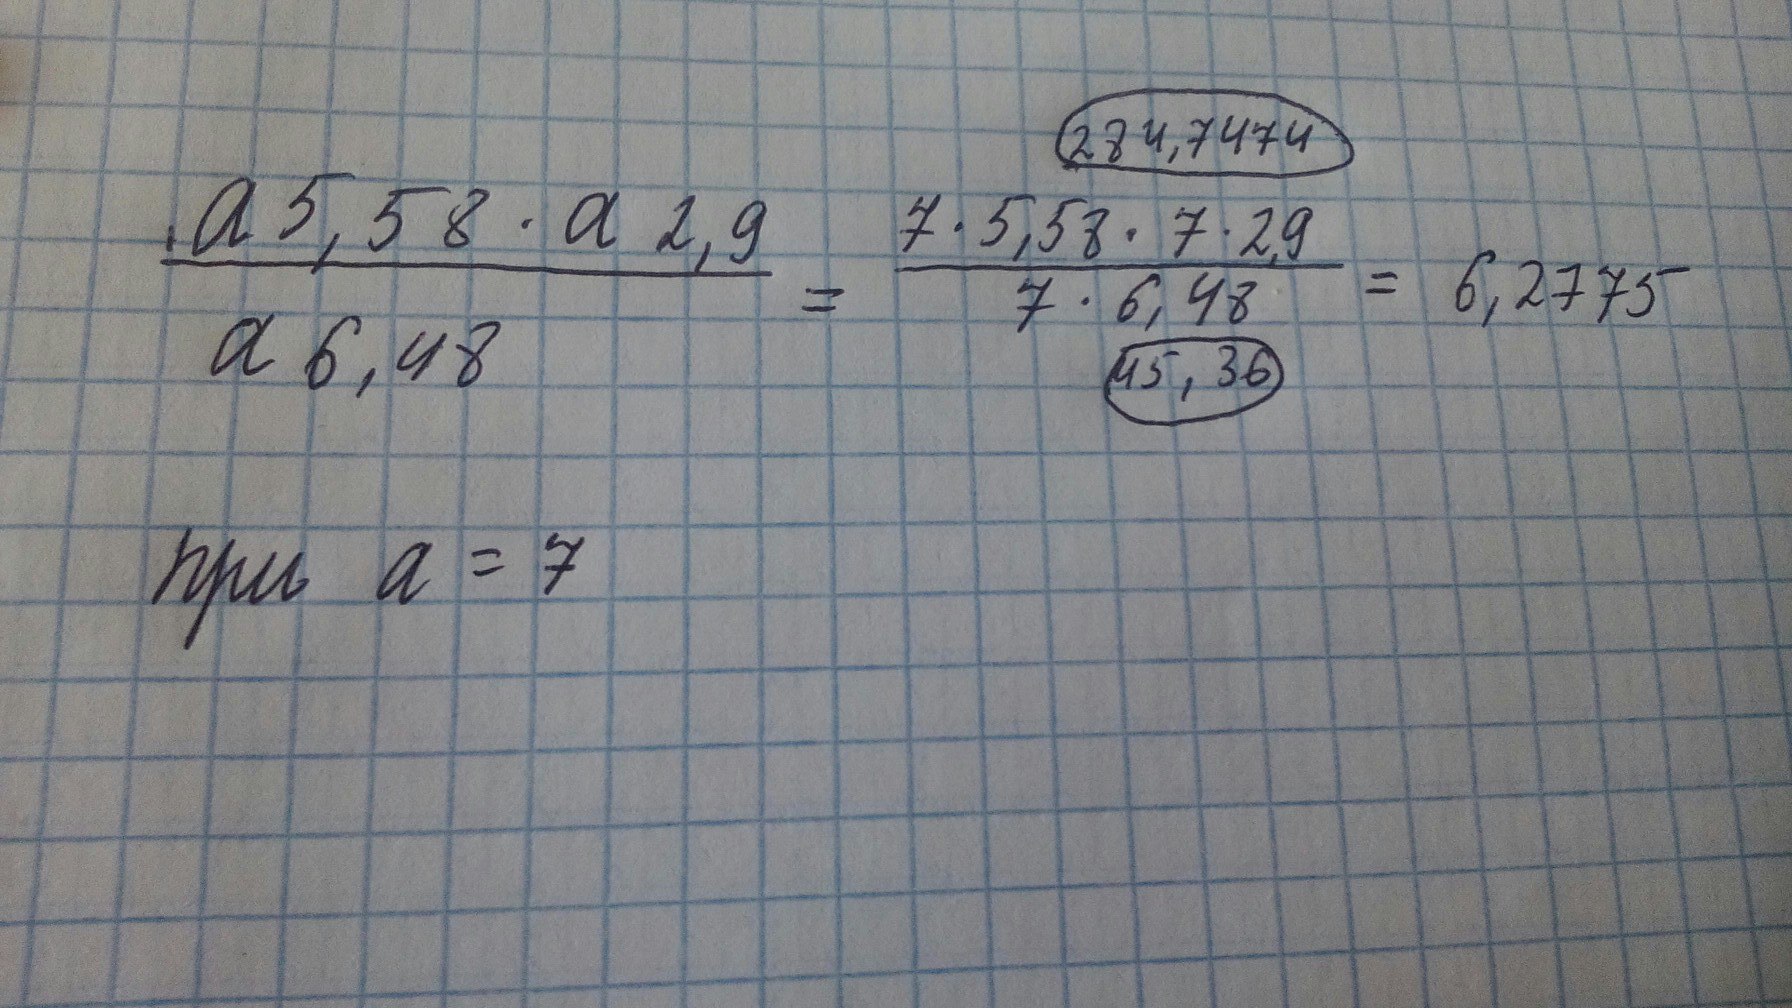 284,7474
a 5,58 · a 2,9 / a 6,48 = 7 · 5,58 · 7 · 2,9 / 7 · 6,48 = 6,2775
45,36
при a = 7